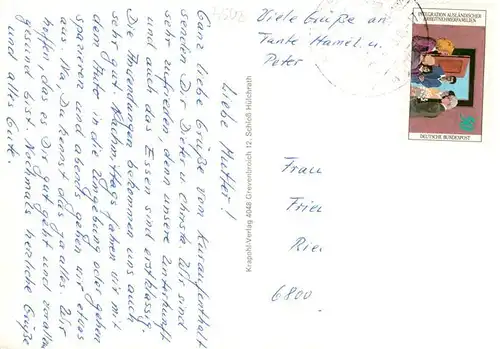 Liebe Mutter!
Ganz liebe Grüße vom Kuraufenthalt
senden Dir Dieter u. Christa. Wir sind
sehr zufrieden, denn unsere Unterkunft
und auch das Essen sind erstklassig.
Die Anwendungen bekommen uns auch
sehr gut. Nachmittags fahren wir mit
dem Auto in die Umgebung oder gehen
spazieren und abends gehen wir etwas
aus. Na, Du kennst das ja alles. Wir
hoffen, das es Dir gut geht und vor allem
gesund bist. Nochmals herzliche Grüße
und alles Gute.
Viele Grüße an
Tante Hamel. u.
Peter
Krapohl-Verlag 4048 Grevenbroich 12, Schloß Hülchrath
INTEGRATION AUSLÄNDISCHER
ARBEITNEHMERFAMILIEN
DEUTSCHE BUNDESPOST
Frau
Frie
Rie
6800